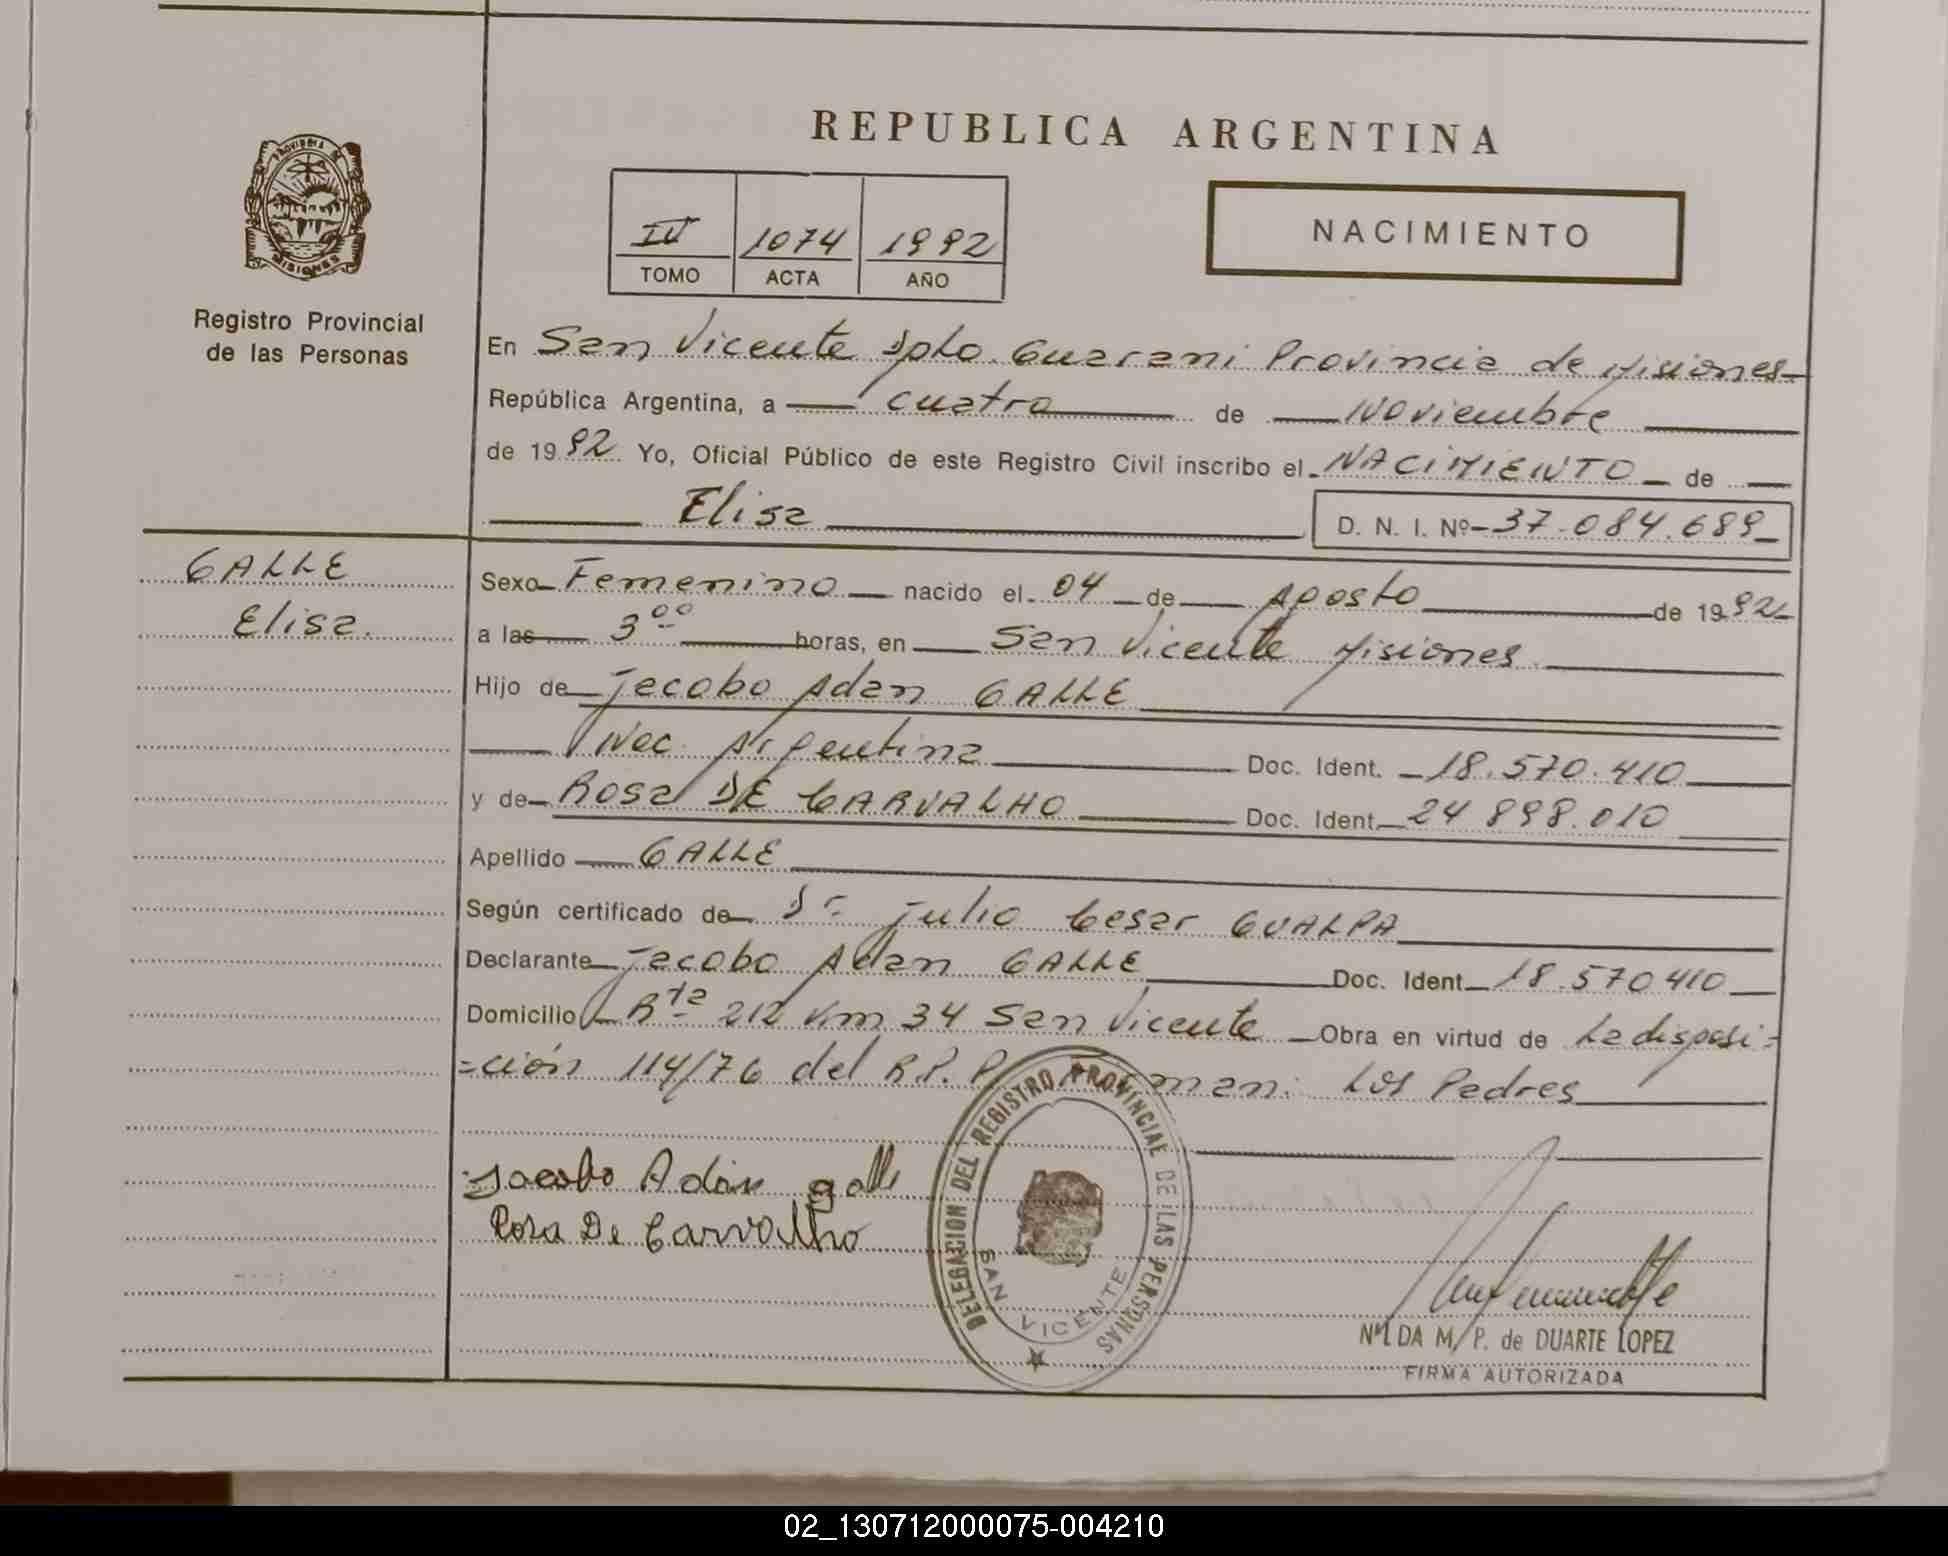 REPUBLICA ARGENTINA
PROVINCIA DE
MISIONES
Registro Provincial
de las Personas
IV 1074 1992
TOMO ACTA AÑO
NACIMIENTO
En San Vicente Dpto. Guarani Provincia de Misiones
República Argentina, a cuatro de Noviembre
de 1992. Yo, Oficial Público de este Registro Civil inscribo el NACIMIENTO de
Elisa D. N. I. Nº 37.084.689
GALLE
Elisa.
Sexo Femenino nacido el 04 de Agosto de 1992
a las 3⁰⁰ horas, en San Vicente Misiones.
Hijo de Jacobo Adan GALLE
Nac. Argentina Doc. Ident. 18.570.410
y de Rosa DE CARVALHO Doc. Ident. 24 898.010
Apellido GALLE
Según certificado de Dr. Julio Cesar GUALPA
Declarante Jacobo Adan GALLE Doc. Ident. 18.570410
Domicilio Rta 212 Km 34 San Vicente Obra en virtud de La disposi=
=ción 114/76 del R.P.P. man: Los Padres
Jacobo Adán galle
Rosa De Carvalho
DELEGACION DEL REGISTRO PROVINCIAL DE LAS PERSONAS
SAN VICENTE
NILDA M. P. de DUARTE LOPEZ
FIRMA AUTORIZADA
02_130712000075-004210